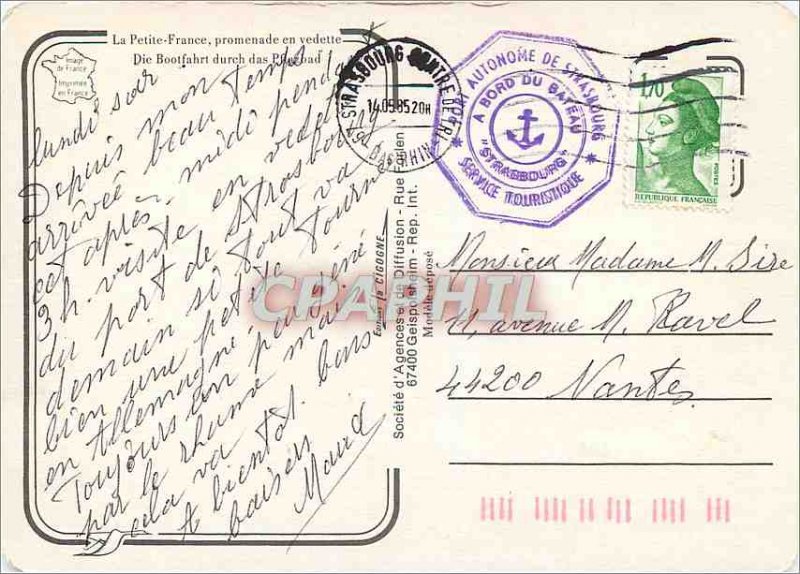 La Petite-France, promenade en vedette
Die Bootfahrt durch das
Image
de France
Imprimée
en France
lundi soir
Depuis mon
arrivée beau temps
cet après-midi pendant
3 h. visite en vedette
du port de Strasbourg.
demain si tout va
bien une petite tournée
en Allemagne.
Toujours un peu gêné
par le rhume mais
cela va.
A bientôt. bons
baisers
Maud
Editions la CIGOGNE
Société d'Agences et de Diffusion - Rue Fablen
67400 Geispolsheim - Rep. Int.
Modèle déposé
67 STRASBOURG CENTRE DE TRI
14.05.85 20H
BAS RHIN
PORT AUTONOME DE STRASBOURG
A BORD DU BATEAU
"STRASBOURG"
SERVICE TOURISTIQUE
1,70
POSTES
REPUBLIQUE FRANÇAISE
Monsieur Madame M. Sire
11, avenue M. Ravel
44200 Nantes
CPAPHIL